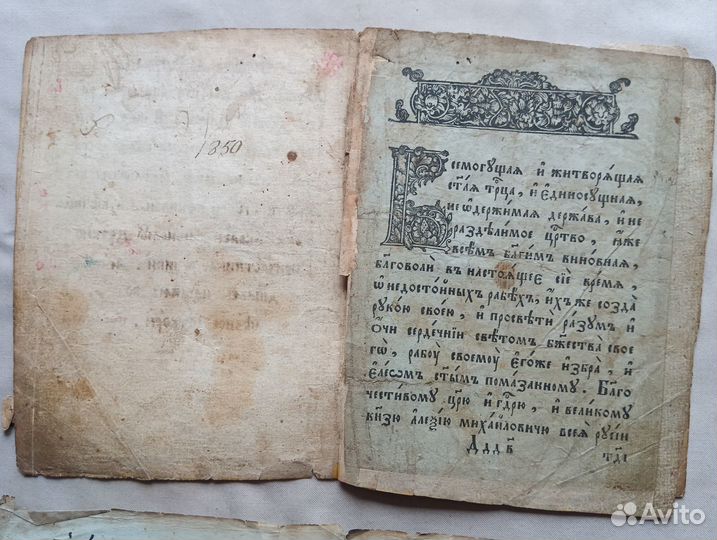 1850
Всемогꙋщаѧ и҆ житворѧ́щаѧ
ст҃аѧ трⷪ҇ца, и҆ є҆диносꙋщнаѧ,
не ѡ҆держи́маѧ держа́ва, и҆ не
раздѣли́мое црⷭ҇тво, ꙗ҆́же
всѣ́мъ бл҃ги́мъ вино́внаѧ,
бл҃говолѝ въ настоѧ́щее сїѐ вре́мѧ,
ѡ҆ недосто́йныхъ рабѣ́хъ, и҆́хже созда̀
рꙋко́ю свое́ю, и҆ просвѣтѝ ра́зꙋмъ и҆
ѻ҆́чи серде́чнїи свѣ́томъ бж҃ества̀ свое
гѡ̀, рабꙋ̀ своемꙋ̀ є҆го́же и҆збра̀, и҆
є҆ле́омъ ст҃ы́мъ пома́занномꙋ. Бл҃го
чести́вомꙋ цр҃ю̀ и҆ гдⷭ҇рю, и҆ вели́комꙋ
кн҃зю а҆леѯі́ю миха́йловичю всеѧ̀ рꙋсі́и
Avito